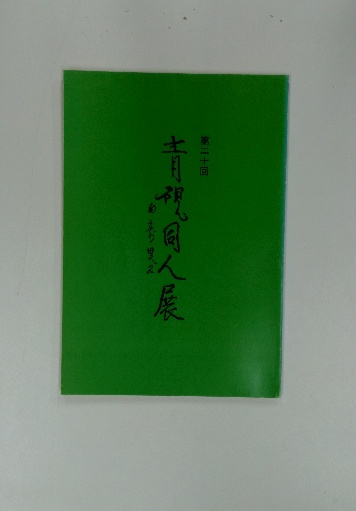 第二十回
青硯同人展